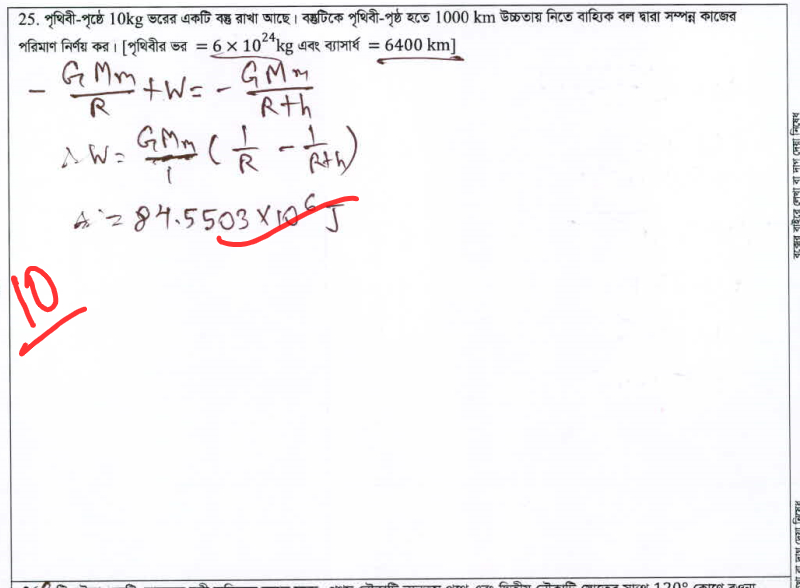 25. পৃথিবী-পৃষ্ঠে 10kg ভরের একটি বস্তু রাখা আছে। বস্তুটিকে পৃথিবী-পৃষ্ঠ হতে 1000 km উচ্চতায় নিতে বাহ্যিক বল দ্বারা সম্পন্ন কাজের
পরিমাণ নির্ণয় কর। [পৃথিবীর ভর = 6 × 10²⁴kg এবং ব্যাসার্ধ = 6400 km]
- GMm/R + W = - GMm/R+h
∴ W = GMm/1 (1/R - 1/R+h)
= 84.5503 × 10⁶ J
10
বক্সের বাইরে লেখা বা দাগ দেয়া নিষেধ